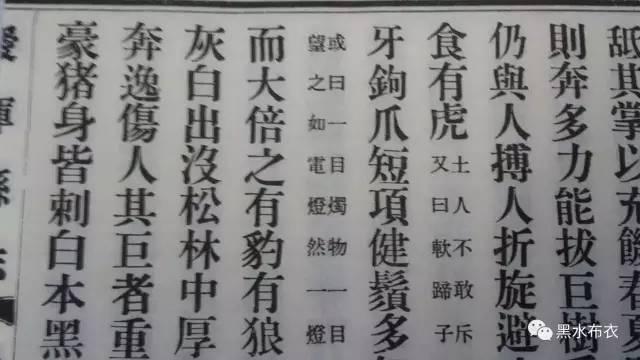 舐其掌以充饑
則奔多力能拔巨樹
仍與人搏人折旋避
食有虎土人不敢斥
又曰軟蹄子
牙鉤爪短項健鬚多
或曰一目燭物一目
望之如電燈然一燈
而大倍之有豹有狼
灰白出沒松林中厚
奔逸傷人其巨者重
豪猪身皆刺白本黑
琿
黑水布衣